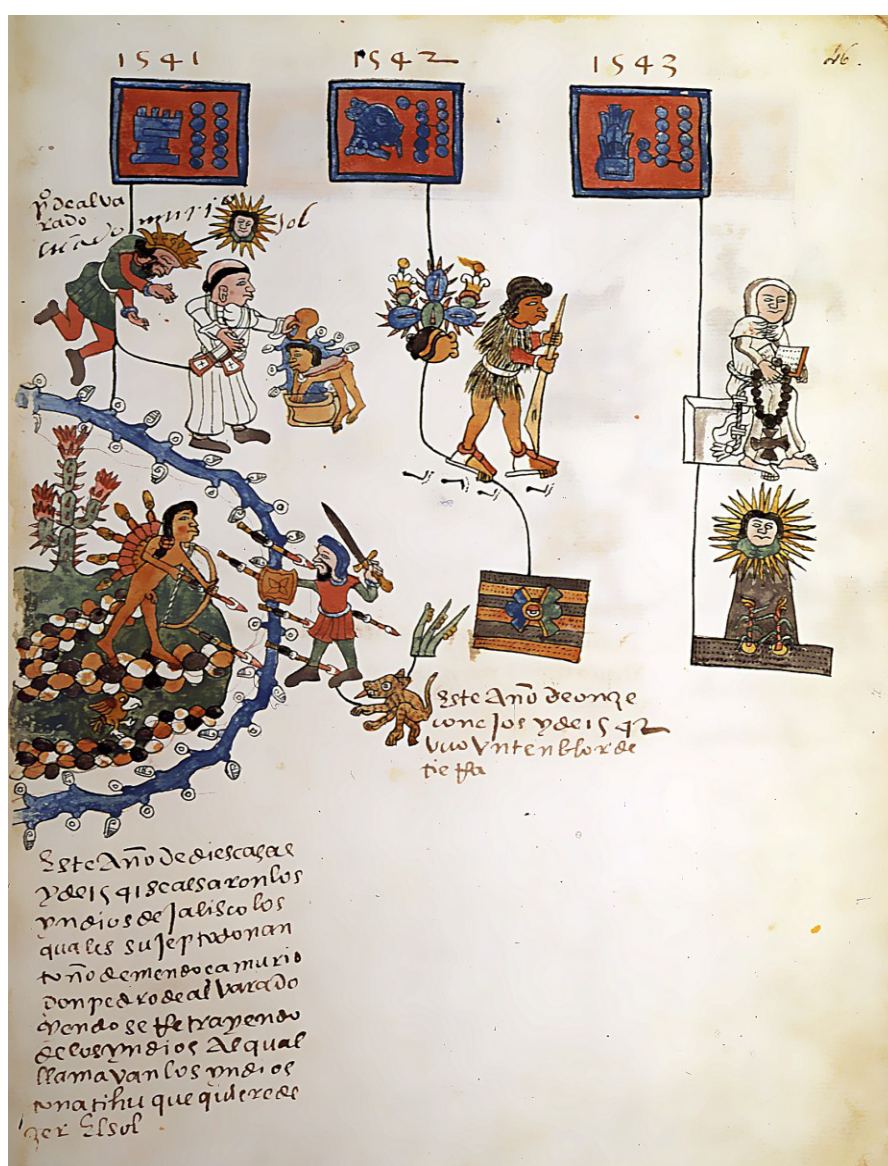 1541
1542
1543
46.
po dealva
rado
murio
sol
Este Año de onze
conejos y de 1542
vuo vn tenblor de
tierra
Este Año de diescasas
y de 1541 se alsaron los
yndios de Jalisco los
quales sujepto don an
toño de mendoca murio
Don pedro de alvarado
yendo se retrayendo
de los yndios Al qual
llamavan los yndios
tonatihu que quiere de
zer El sol